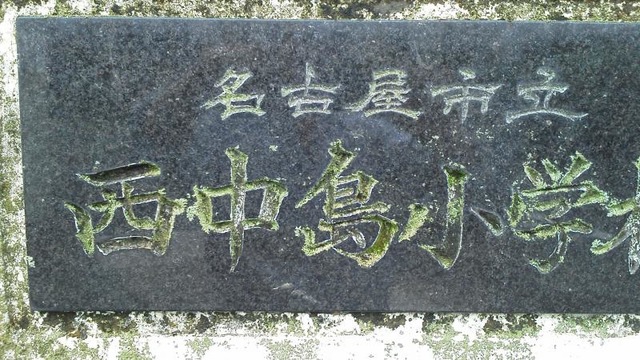 名古屋市立
西中島小学校